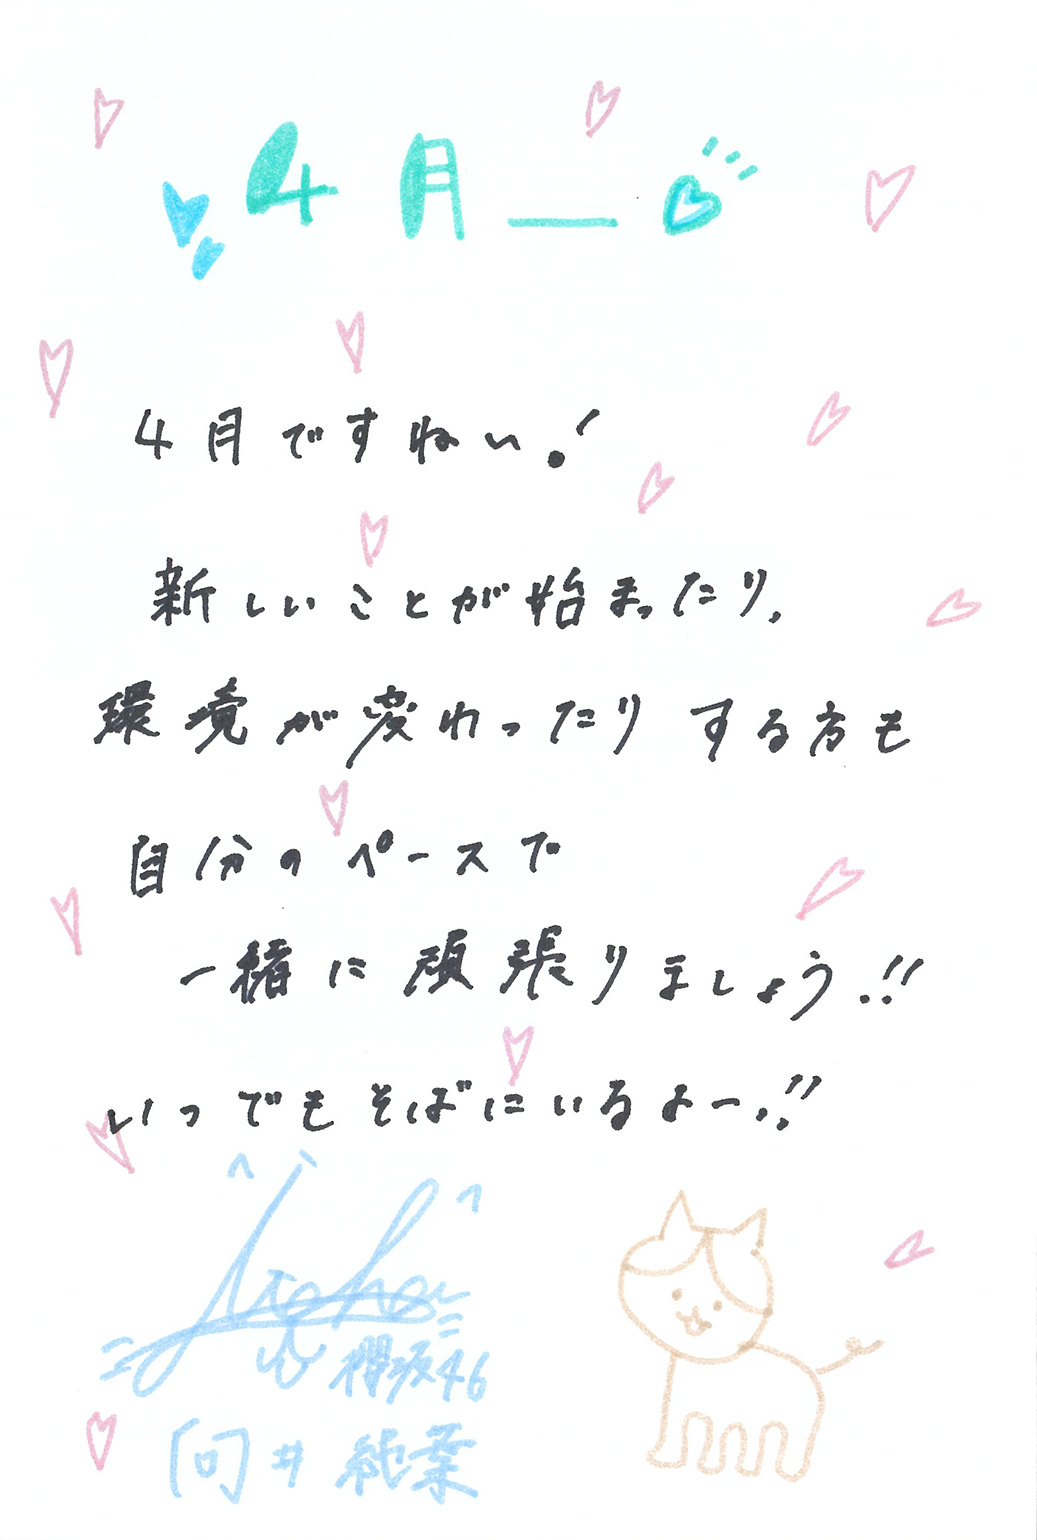 4月__
4月ですねぃ!
新しいことが始まったり、
環境が変わったりする方も
自分のペースで
一緒に頑張りましょう!!
いつでもそばにいるよー!!
櫻坂46
向井純葉